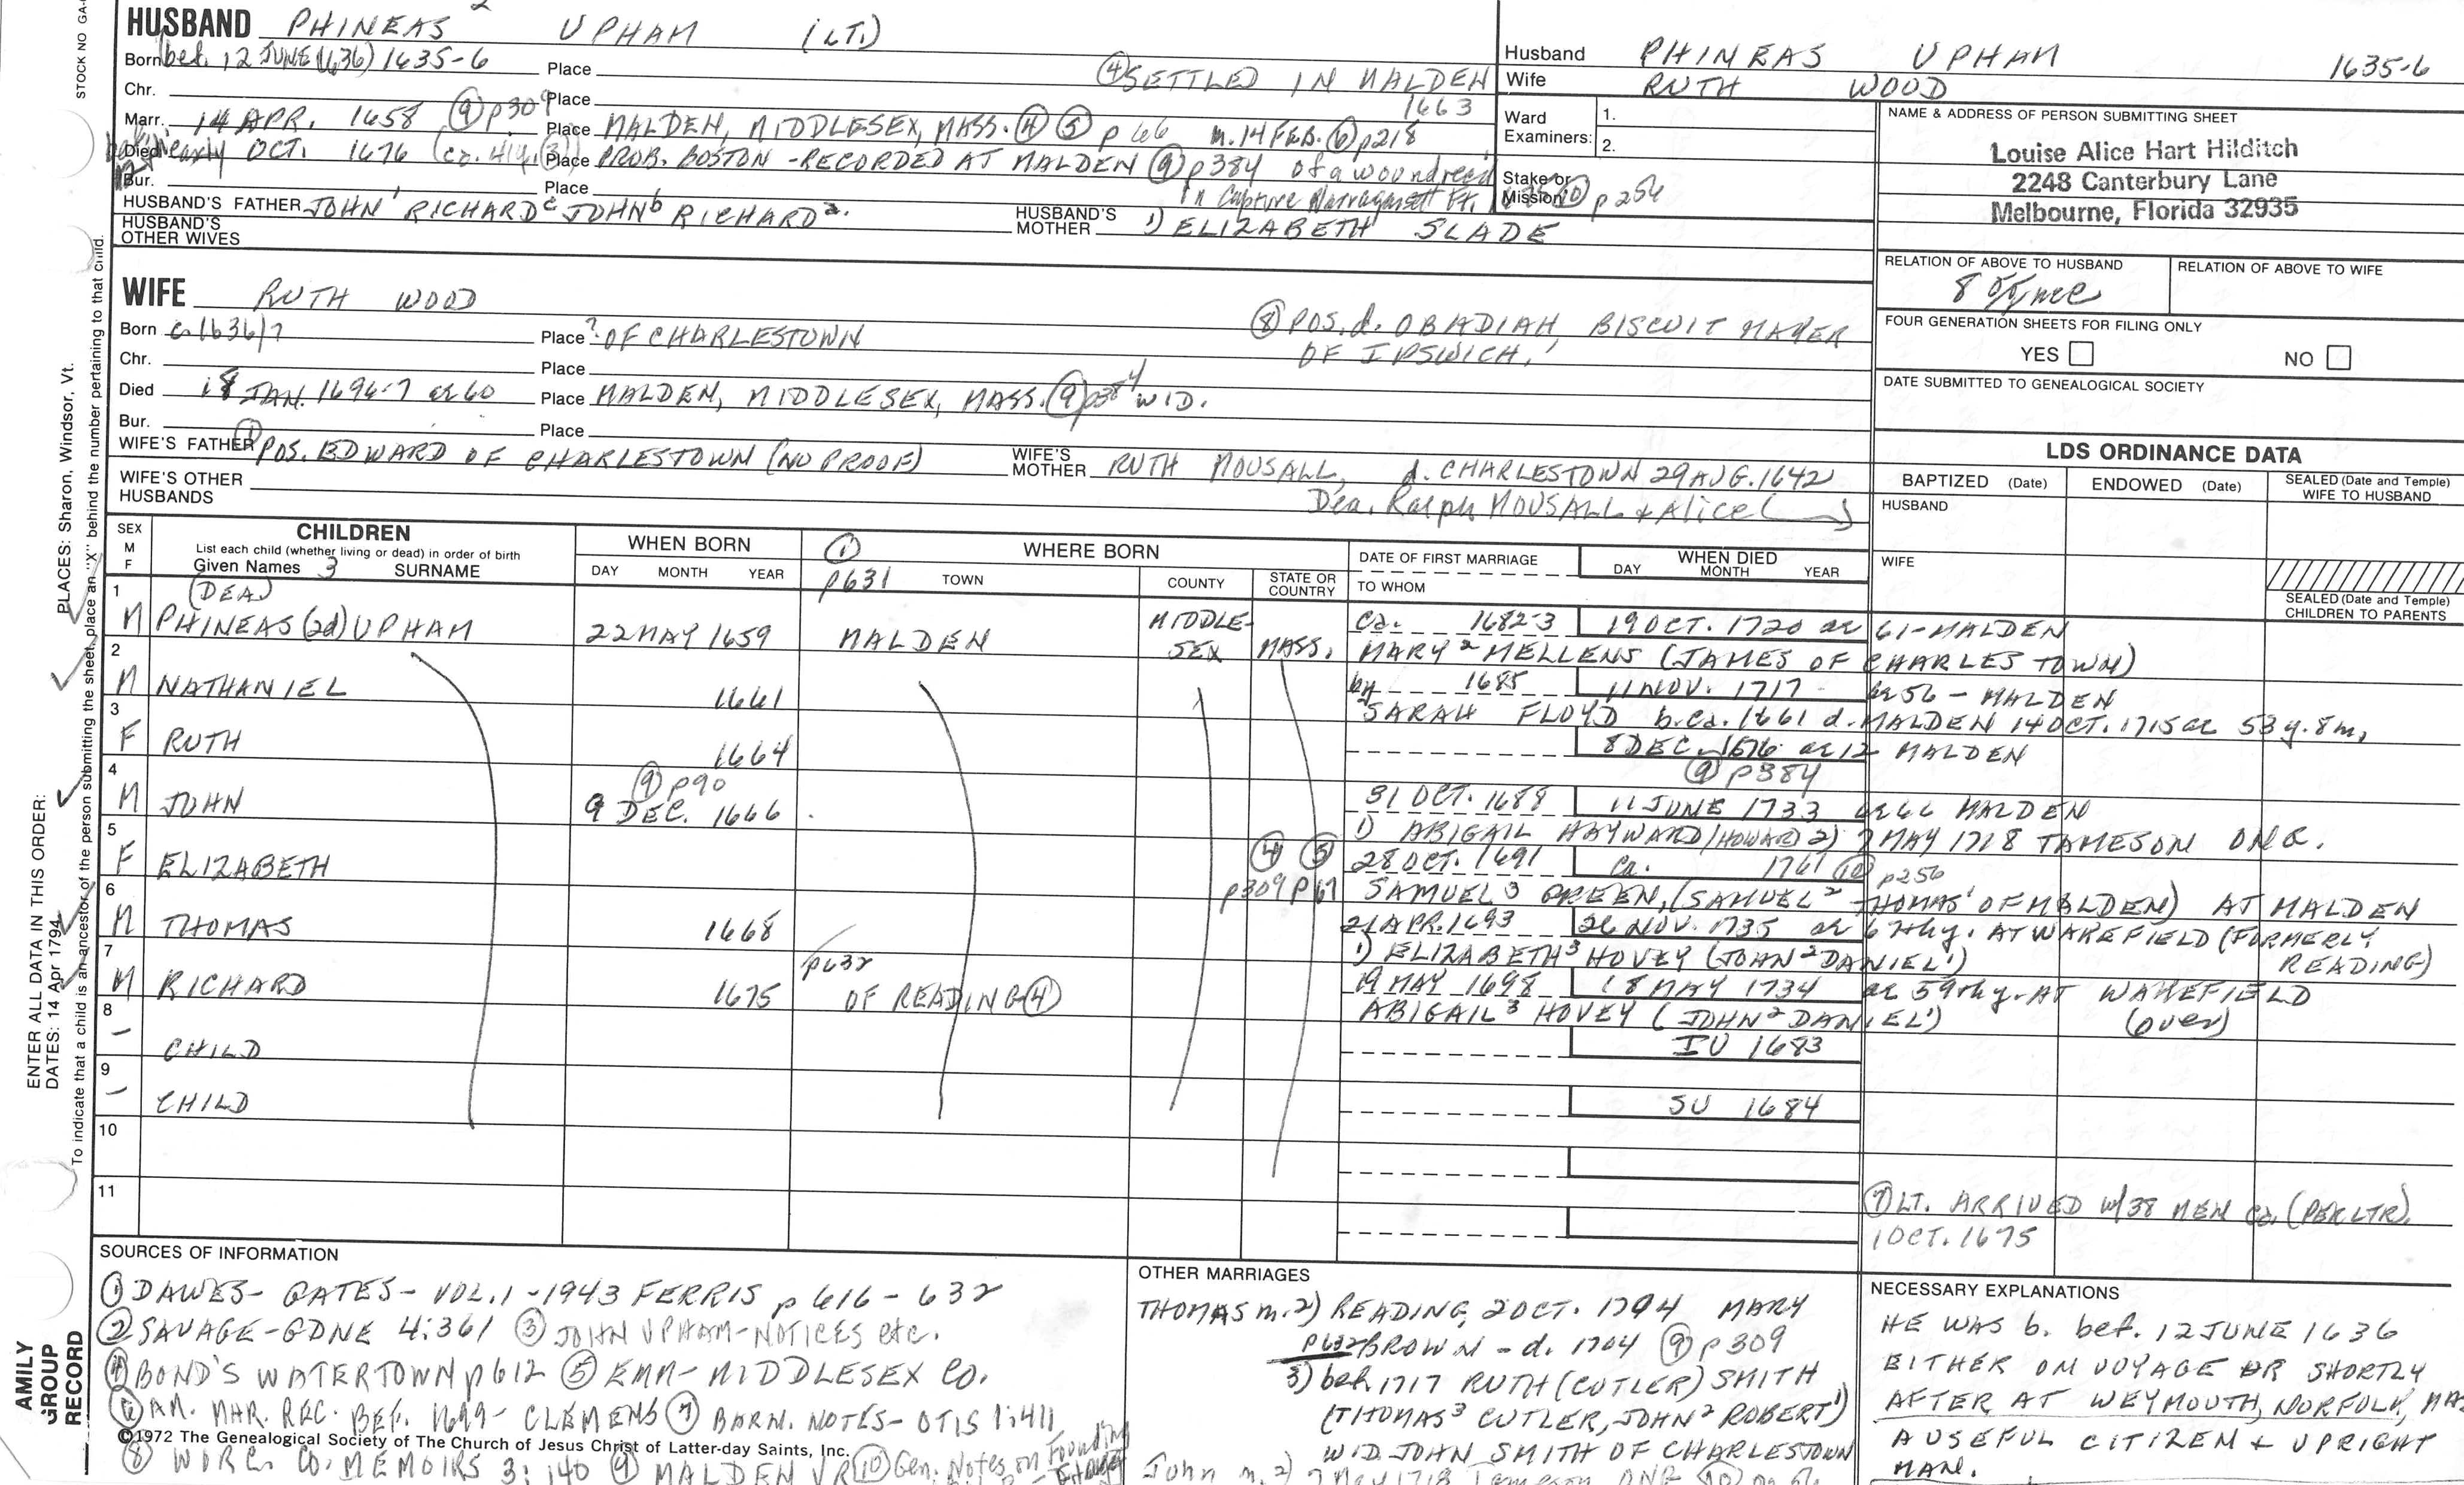 HUSBAND PHINEAS 2 UPHAM (LT.)
Born bef. 12 JUNE (1636) 1635-6 Place
④ SETTLED IN MALDEN 1663
Chr. Place
Marr. 14 APR. 1658 ⑨ p309 Place MALDEN, MIDDLESEX, MASS. ④ ⑤ p 66 m. 14 FEB. ⑥ p218
Died early OCT. 1676 Place PROB. BOSTON - RECORDED AT MALDEN ⑨ p384 of a wound recd
in Capture Narragansett Ft. ⑩ p 256
Bur. Place
HUSBAND'S FATHER JOHN 1 RICHARD c JOHN b RICHARD a.
HUSBAND'S MOTHER 1) ELIZABETH SLADE
HUSBAND'S OTHER WIVES
Husband PHINEAS UPHAM 1635-6
Wife RUTH WOOD
Ward Examiners: 1.
2.
Stake or Mission
NAME & ADDRESS OF PERSON SUBMITTING SHEET
Louise Alice Hart Hilditch
2248 Canterbury Lane
Melbourne, Florida 32935
RELATION OF ABOVE TO HUSBAND
8
RELATION OF ABOVE TO WIFE
FOUR GENERATION SHEETS FOR FILING ONLY
YES NO
DATE SUBMITTED TO GENEALOGICAL SOCIETY
WIFE RUTH WOOD
Born c. 1636/7 Place ? OF CHARLESTOWN
⑧ POS. d. OBADIAH, BISCUIT MAKER
OF IPSWICH.
Chr. Place
Died 18 JAN. 1696-7 ae 60 Place MALDEN, MIDDLESEX, MASS. ⑨ p384 WID.
Bur. Place
WIFE'S FATHER ① POS. EDWARD OF CHARLESTOWN (NO PROOF)
WIFE'S MOTHER RUTH MOUSALL, d. CHARLESTOWN 29 AUG. 1642
Dea. Ralph MOUSALL + Alice ( )
WIFE'S OTHER HUSBANDS
LDS ORDINANCE DATA
BAPTIZED (Date) ENDOWED (Date) SEALED (Date and Temple) WIFE TO HUSBAND
HUSBAND
WIFE
SEALED (Date and Temple) CHILDREN TO PARENTS
SEX M F
CHILDREN
List each child (whether living or dead) in order of birth
Given Names 3 SURNAME
WHEN BORN
DAY MONTH YEAR
① p631
WHERE BORN
TOWN COUNTY STATE OR COUNTRY
DATE OF FIRST MARRIAGE
TO WHOM
WHEN DIED
DAY MONTH YEAR
1 M (DEA) PHINEAS (2d) UPHAM 22 MAY 1659 MALDEN MIDDLE-SEX MASS. ca. 1682-3 19 OCT. 1720 ae 61 - MALDEN
MARY 2 MELLENS (JAMES OF CHARLESTOWN)
2 M NATHANIEL 1661 by 1685 11 NOV. 1717 ae 56 - MALDEN
SARAH FLOYD b. ca. 1661 d. MALDEN 14 OCT. 1715 ae 53 y. 8 m.
3 F RUTH 1664 8 DEC. 1676 ae 12 MALDEN
⑨ p384
4 M JOHN ⑨ p90 9 DEC. 1666 31 OCT. 1688 11 JUNE 1733 ae 66 MALDEN
1) ABIGAIL HAYWARD/(HOWARD) 2) 7 MAY 1718 TAMESON ONG.
5 F ELIZABETH ④ ⑤ p309 p 67 28 OCT. 1691 ca. 1761 ⑩ p256
SAMUEL 3 GREEN, (SAMUEL 2 THOMAS 1 OF MALDEN) AT MALDEN
6 M THOMAS 1668 21 APR. 1693 26 NOV. 1735 ae 67th y. AT WAKEFIELD (FORMERLY READING)
1) ELIZABETH 3 HOVEY (JOHN 2 DANIEL 1)
7 M RICHARD 1675 p632 OF READING ④ 19 MAY 1698 18 MAY 1734 ae 59th y. AT WAKEFIELD
ABIGAIL 3 HOVEY (JOHN 2 DANIEL 1) (over)
8 - CHILD IU 1683
9 - CHILD SU 1684
10
11
⑦ LT. ARRIVED w/38 MEN ca. (PER LTR)
1 OCT. 1675
SOURCES OF INFORMATION
① DAWES - GATES - VOL. 1 - 1943 FERRIS p 616 - 632
② SAVAGE - GDNE 4:361 ③ JOHN UPHAM - NOTICES etc.
④ BOND'S WATERTOWN p 612 ⑤ EMA - MIDDLESEX CO.
⑥ AM. MAR. REC. BEF. 1699 - CLEMENS ⑦ BARN. NOTES - OTIS 1:411
©1972 The Genealogical Society of The Church of Jesus Christ of Latter-day Saints, Inc.
⑧ WORC. CO. MEMOIRS 3:140 ⑨ MALDEN VR ⑩ Gen. Notes on Founding
OTHER MARRIAGES
THOMAS m. 2) READING, 2 OCT. 1704 MARY
p632 BROWN - d. 1704 ⑨ p309
3) bef. 1717 RUTH (CUTLER) SMITH
(THOMAS 3 CUTLER, JOHN 2 ROBERT 1)
WID. JOHN SMITH OF CHARLESTOWN
John m. 2) 7 May 1718 Tameson ONG ⑩
NECESSARY EXPLANATIONS
HE WAS b. bef. 12 JUNE 1636
EITHER ON VOYAGE OR SHORTLY
AFTER AT WEYMOUTH, NORFOLK,
A USEFUL CITIZEN + UPRIGHT
MAN.
STOCK NO
PLACES: Sharon, Windsor, Vt.
To indicate that a child is an ancestor of the person submitting the sheet, place an "X" behind the number pertaining to that child.
ENTER ALL DATA IN THIS ORDER:
DATES: 14 Apr 1794
AMILY
GROUP
RECORD